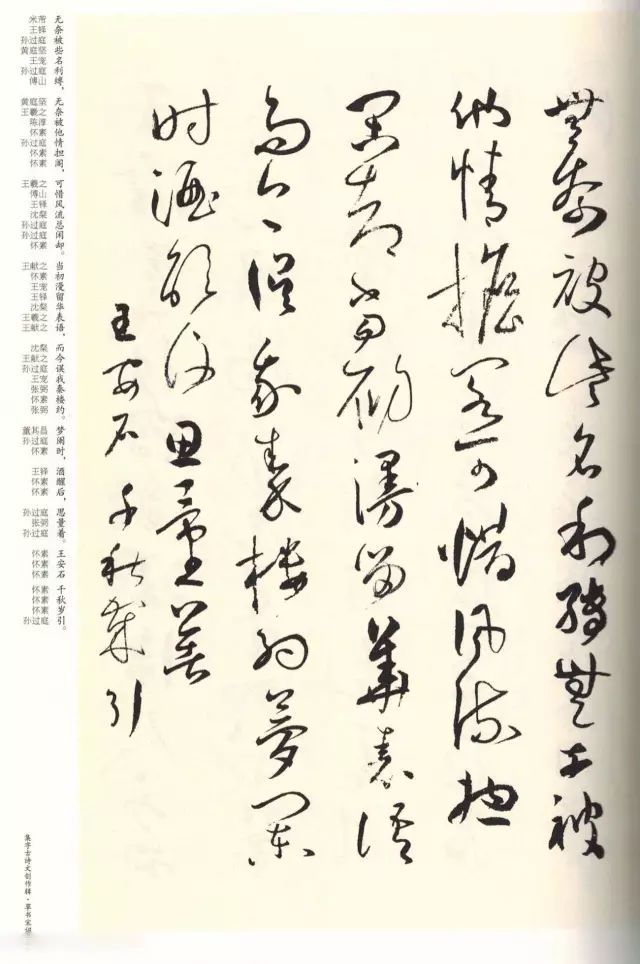 無奈被些名利縛無奈被
他情擔閣可惜風流總
閑却當初漫留華表語
而今誤我秦樓約夢闌
时酒醒後思量著
王安石千秋歲引
米芾 无
王铎 奈
孙过庭 被
黄庭坚 些
王宠 名
孙过庭 利
傅山 缚，
黄庭坚 无
王羲之 奈
陈淳 被
怀素 他
孙过庭 情
怀素 担
怀素 阁，
王羲之 可
傅山 惜
王铎 风
沈粲 流
孙过庭 总
孙过庭 闲
怀素 却。
王献之 当
怀素 初
王宠 漫
王铎 留
沈粲 华
王羲之 表
王献之 语，
沈粲 而
王献之 今
孙过庭 误
王宠 我
张弼 秦
怀素 楼
张弼 约。
董其昌 梦
孙过庭 阑
怀素 时，
王铎 酒
怀素 醒
怀素 后，
孙过庭 思
张弼 量
孙过庭 着。
怀素 王
怀素 安
怀素 石
怀素 千
怀素 秋
怀素 岁
孙过庭 引。
集字古诗文创作辑·草书宋词